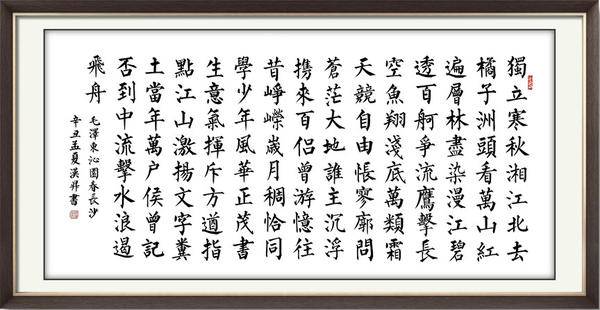 獨立寒秋湘江北去
橘子洲頭看萬山紅
遍層林盡染漫江碧
透百舸爭流鷹擊長
空魚翔淺底萬類霜
天競自由悵寥廓問
蒼茫大地誰主沉浮
攜來百侣曾游憶往
昔崢嶸歲月稠恰同
學少年風華正茂書
生意氣揮斥方遒指
點江山激揚文字糞
土當年萬户侯曾記
否到中流擊水浪遏
飛舟
毛澤東沁園春長沙
辛丑孟夏書